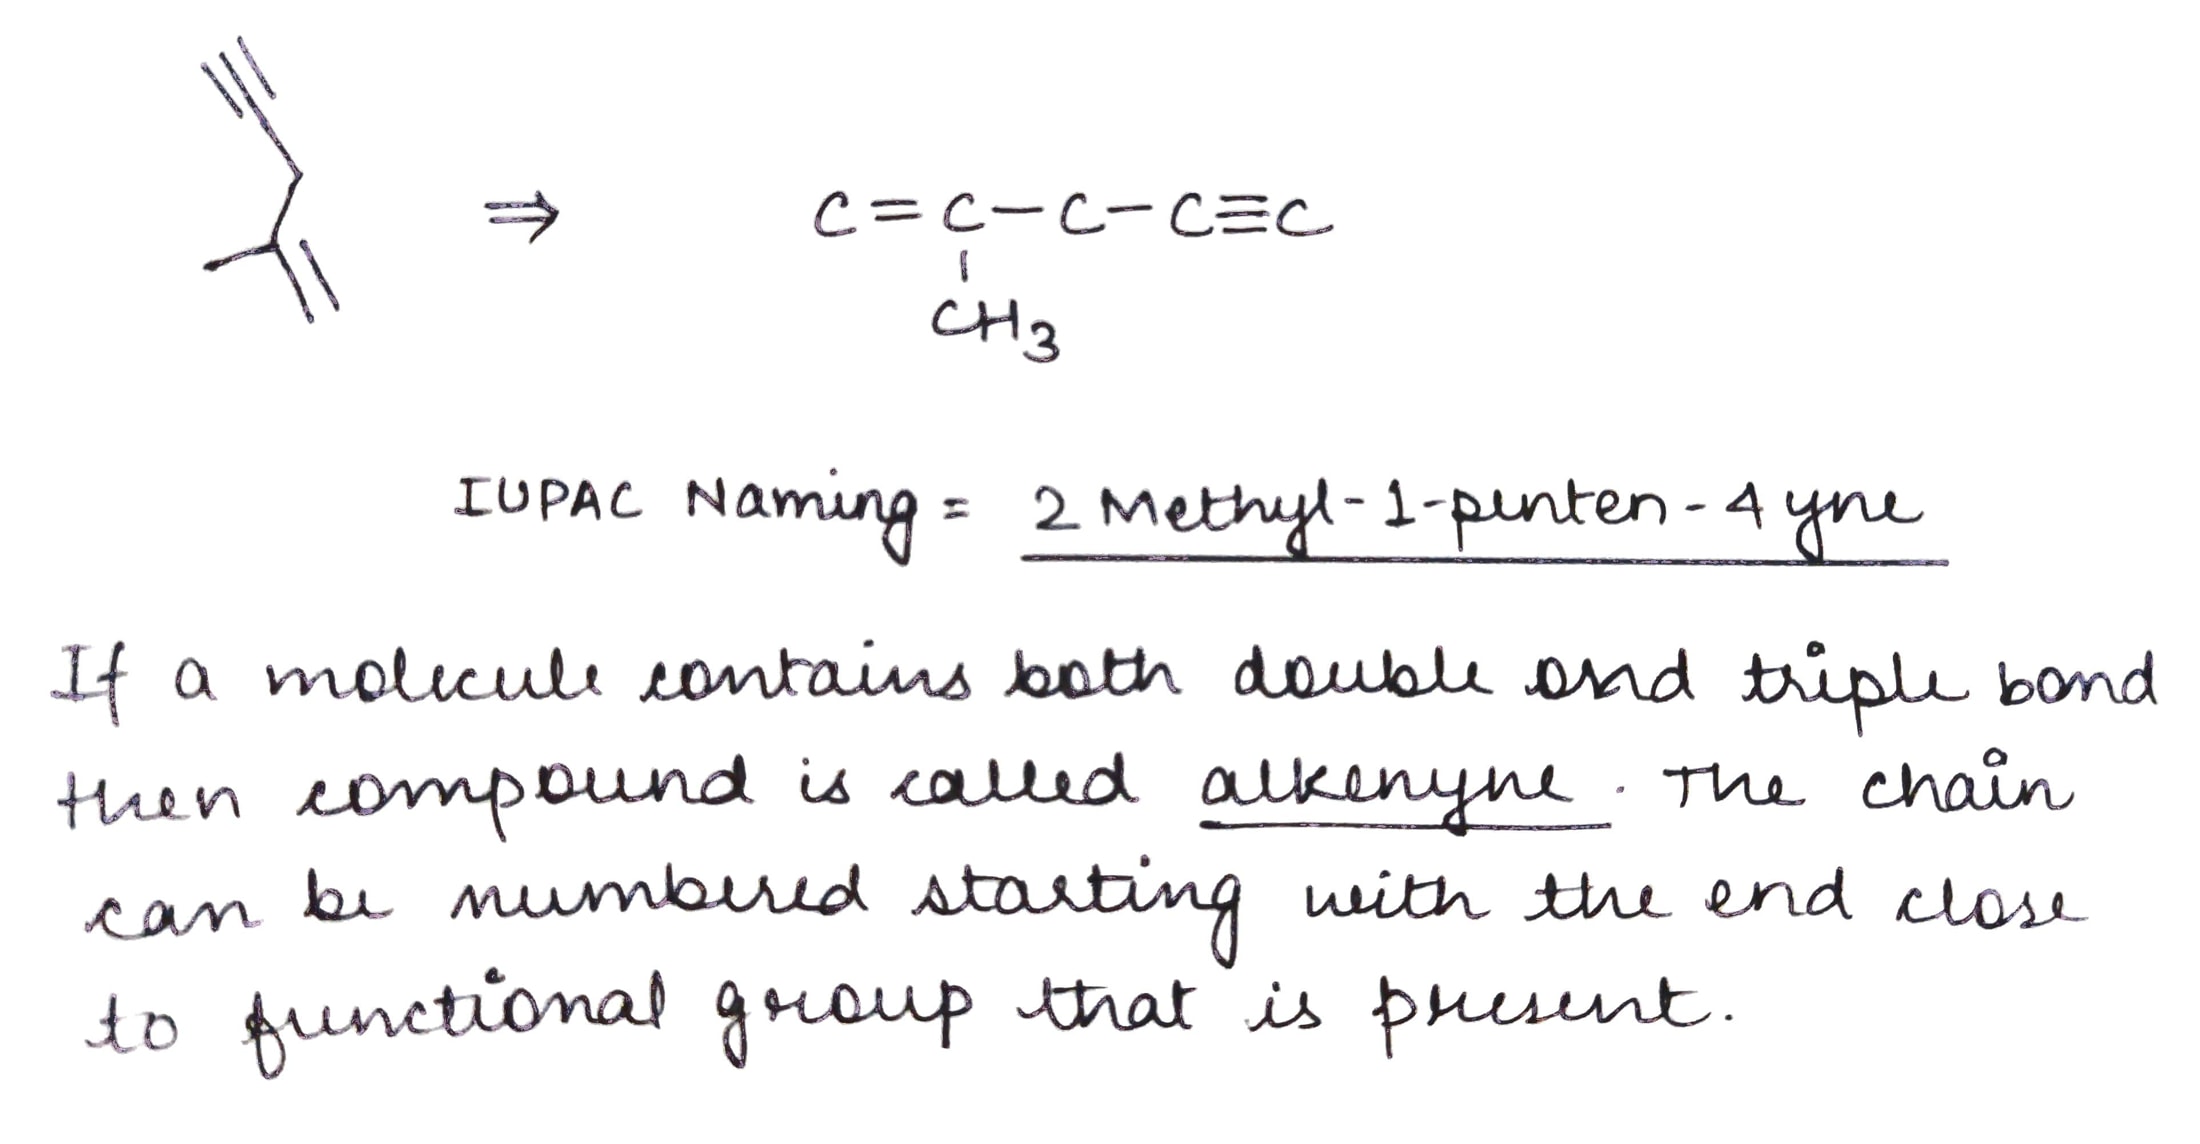 C=C-C-C≡C
CH3
IUPAC Naming = 2 Methyl-1-penten-4 yne
If a molecule contains both double and triple bond
then compound is called alkenyne. The chain
can be numbered starting with the end close
to functional group that is present.